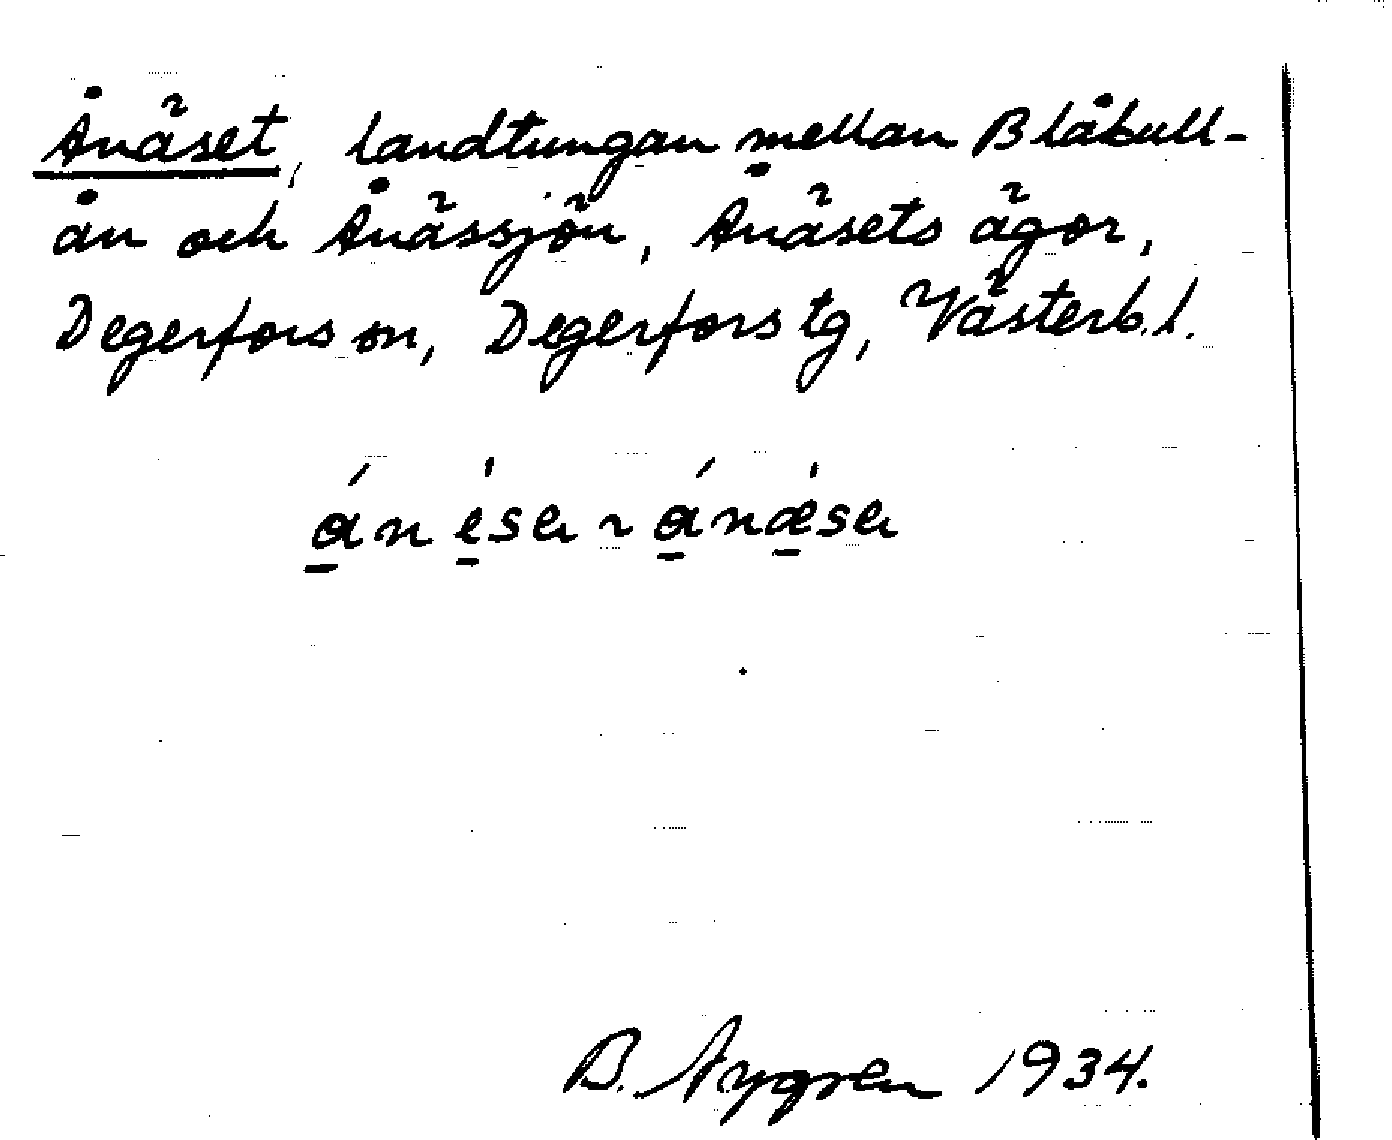 Ånäset, landtungan mellan Blåkull-
ån och Ånässjön, Ånäsets ägor,
Degerfors sn, Degerfors tg, Västerb. l.
ánèsa ~ ánæ̀sa
B. Nygren 1934.